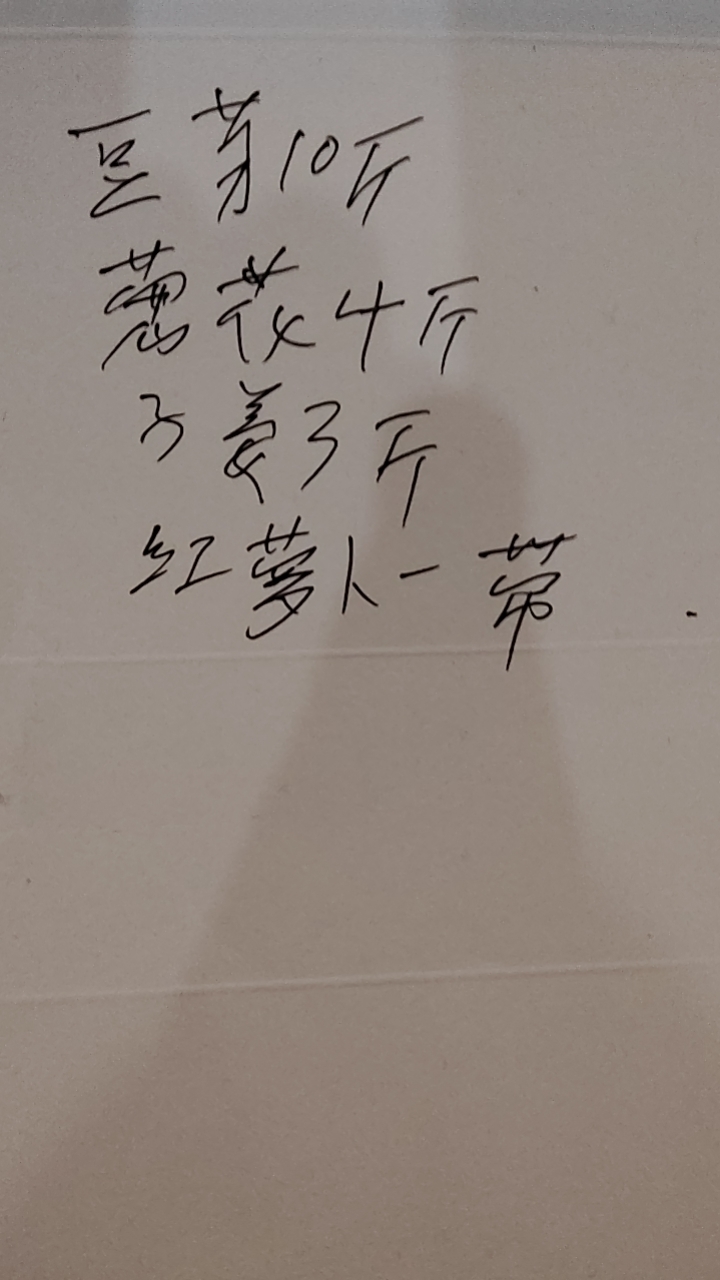 豆芽10斤
葱花4斤
子姜3斤
红萝卜一带